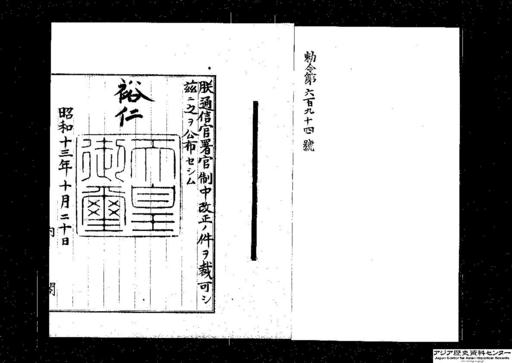 勅令第六百九十四號
朕通信官署官制中改正ノ件ヲ裁可シ
茲ニ之ヲ公布セシム
裕仁
天皇
御璽
昭和十三年十月二十日
内閣
アジア歴史資料センター
Japan Center for Asian Historical Records